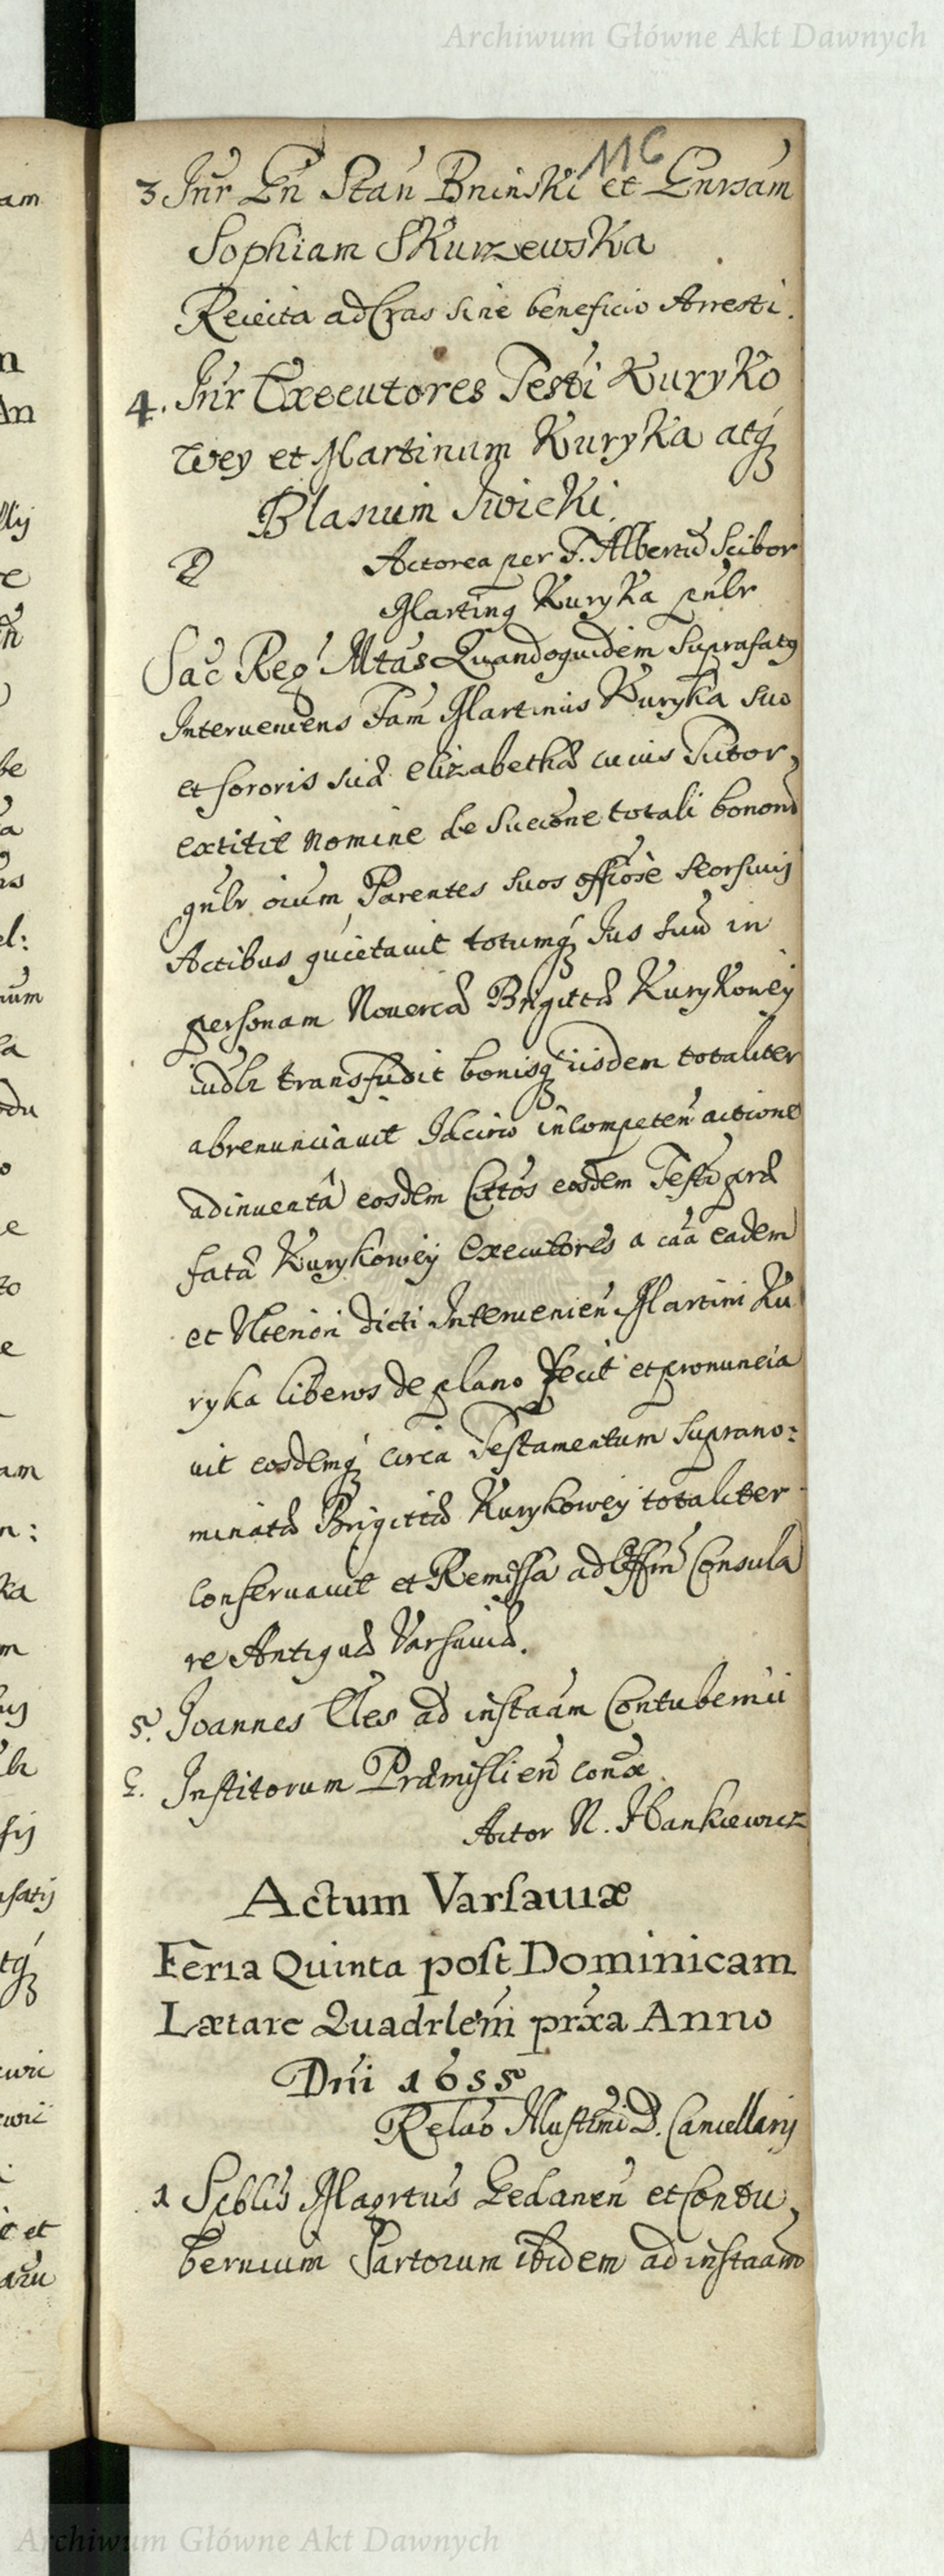 Archiwum Główne Akt Dawnych
116
3 Inr Gn Stan Bninski et Gnrsam
Sophiam Skurzewska
Reiecta ad Cras sine beneficio Arresti.
4. Inr Executores Testi Kuryko
wey et Martinum Kuryka atq
Blasium Swicki.
D Actorea per F. Albertu Scibor
Marting Kuryka pnlr
Sac Reg Mtas Quandoquidem Suprafatq
Interveniens Fam Martinus Kuryka suo
et sororis suæ Elizabethæ cuius Tutor
extitit Nomine de Succone totali bonoru
gnlr oium Parentes suos offiose seorsivis
Actibus quietavit totumq Jus suu in
personam Novercæ Brigittæ Kurykowey
iudlr transfudit bonisq iisdem totaliter
abrenunciavit Idcirco incompeten actione
adinventâ eosdem Cittos eosdem Testi præ
fatæ Kurykowey Executores a caa eadem
et Ulteriori dicti Intervenien Martini Ku
ryka liberos de plano fecit et pronuncia
vit eosdemq circa Testamentum suprano:
minatæ Brigittæ Kurykowey totaliter
conservavit et Remissa ad Offm Consula
re Antiquæ Varsaviæ.
5. Joannes Eles ad instaam Contubernii
C. Institorum Præmislien cona
Actor N. Hankiewicz
Actum Varsaviæ
Feria Quinta post Dominicam
Lætare Quadrlem prxa Anno
Dni 1655
Relao Illustrmi D. Cancellarij
1 Spblis Magrtus Gedanen et Contu
bernium Sartorum ibidem ad instaam
Archiwum Główne Akt Dawnych